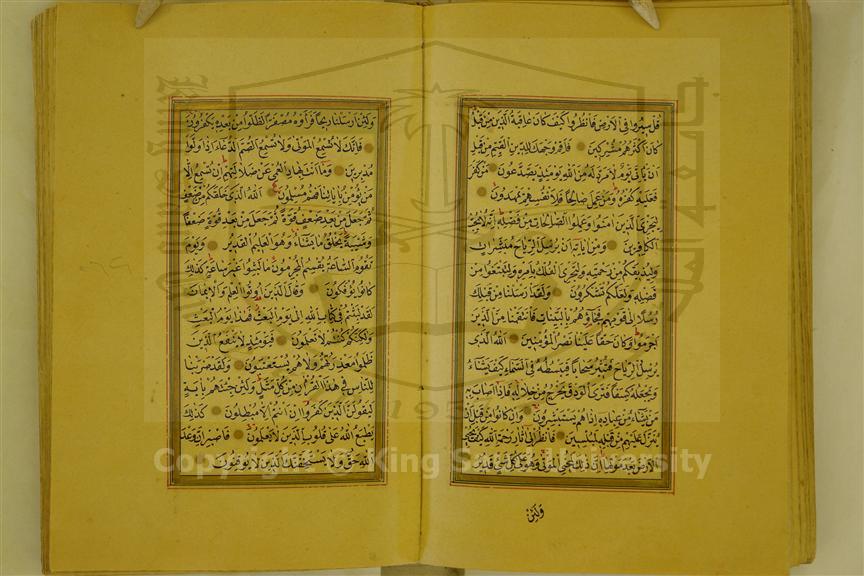 قل سيروا في الارض فانظروا كيف كان عاقبة الذين من قبل
كان اكثرهم مشركين فاقم وجهك للدين القيم من قبل
ان ياتي يوم لا مرد له من الله يومئذ يصدعون من كفر
فعليه كفره ومن عمل صالحا فلانفسهم يمهدون
ليجزي الذين امنوا وعملوا الصالحات من فضله انه لا يحب
الكافرين ومن اياته ان يرسل الرياح مبشرات
وليذيقكم من رحمته ولتجري الفلك بامره ولتبتغوا من
فضله ولعلكم تشكرون ولقد ارسلنا من قبلك
رسلا الى قومهم فجاؤهم بالبينات فانتقمنا من الذين
اجرموا وكان حقا علينا نصر المؤمنين الله الذي
يرسل الرياح فتثير سحابا فيبسطه في السماء كيف يشاء
ويجعله كسفا فترى الودق يخرج من خلاله فاذا اصاب به
من يشاء من عباده اذا هم يستبشرون وان كانوا من قبل ان
ينزل عليهم من قبله لمبلسين فانظر الى اثار رحمة الله كيف يحيي
الارض بعد موتها ان ذلك لمحيي الموتى وهو على كل شيء قدير
ولئن
ولئن ارسلنا ريحا فراوه مصفرا لظلوا من بعده يكفرون
فانك لا تسمع الموتى ولا تسمع الصم الدعاء اذا ولوا
مدبرين وما انت بهاد العمي عن ضلالتهم ان تسمع الا
من يؤمن باياتنا فهم مسلمون الله الذي خلقكم من ضعف
ثم جعل من بعد ضعف قوة ثم جعل من بعد قوة ضعفا
وشيبة يخلق ما يشاء وهو العليم القدير ويوم
تقوم الساعة يقسم المجرمون ما لبثوا غير ساعة كذلك
كانوا يؤفكون وقال الذين اوتوا العلم والايمان
لقد لبثتم في كتاب الله الى يوم البعث فهذا يوم البعث
ولكنكم كنتم لا تعلمون فيومئذ لا تنفع الذين
ظلموا معذرتهم ولا هم يستعتبون ولقد ضربنا
للناس في هذا القران من كل مثل ولئن جئتهم باية
ليقولن الذين كفروا ان انتم الا مبطلون كذلك
يطبع الله على قلوب الذين لا يعلمون فاصبر ان وعد
الله حق ولا يستخفنك الذين لا يوقنون
1957
Copyright © King Saud University